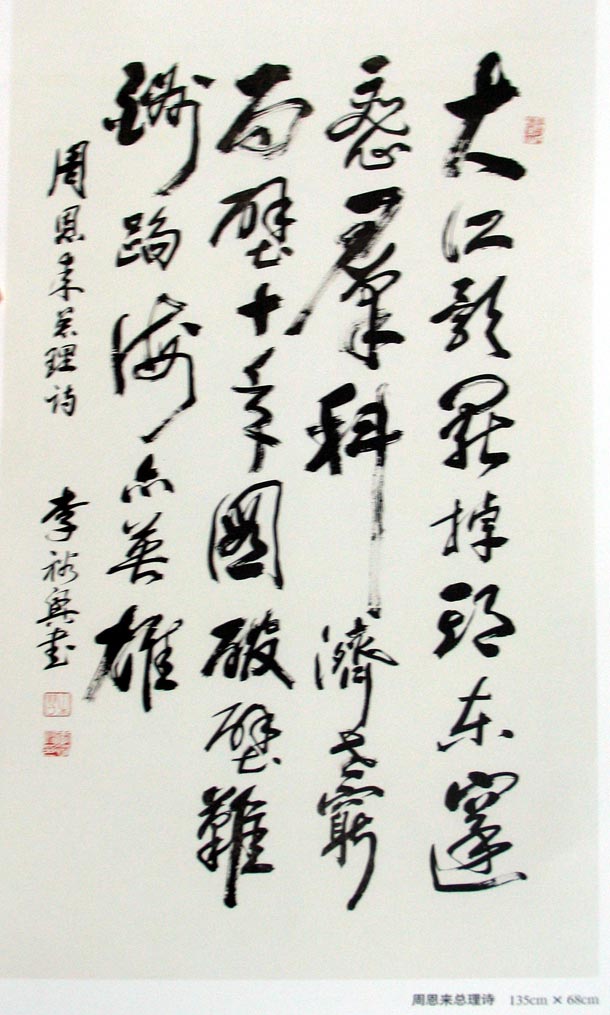 大江歌罢掉頭东邃
密羣科濟世窮
面壁十年圖破壁難
酬蹈海亦英雄
周恩来总理诗 李裕興书
周恩来总理诗 135cm × 68cm